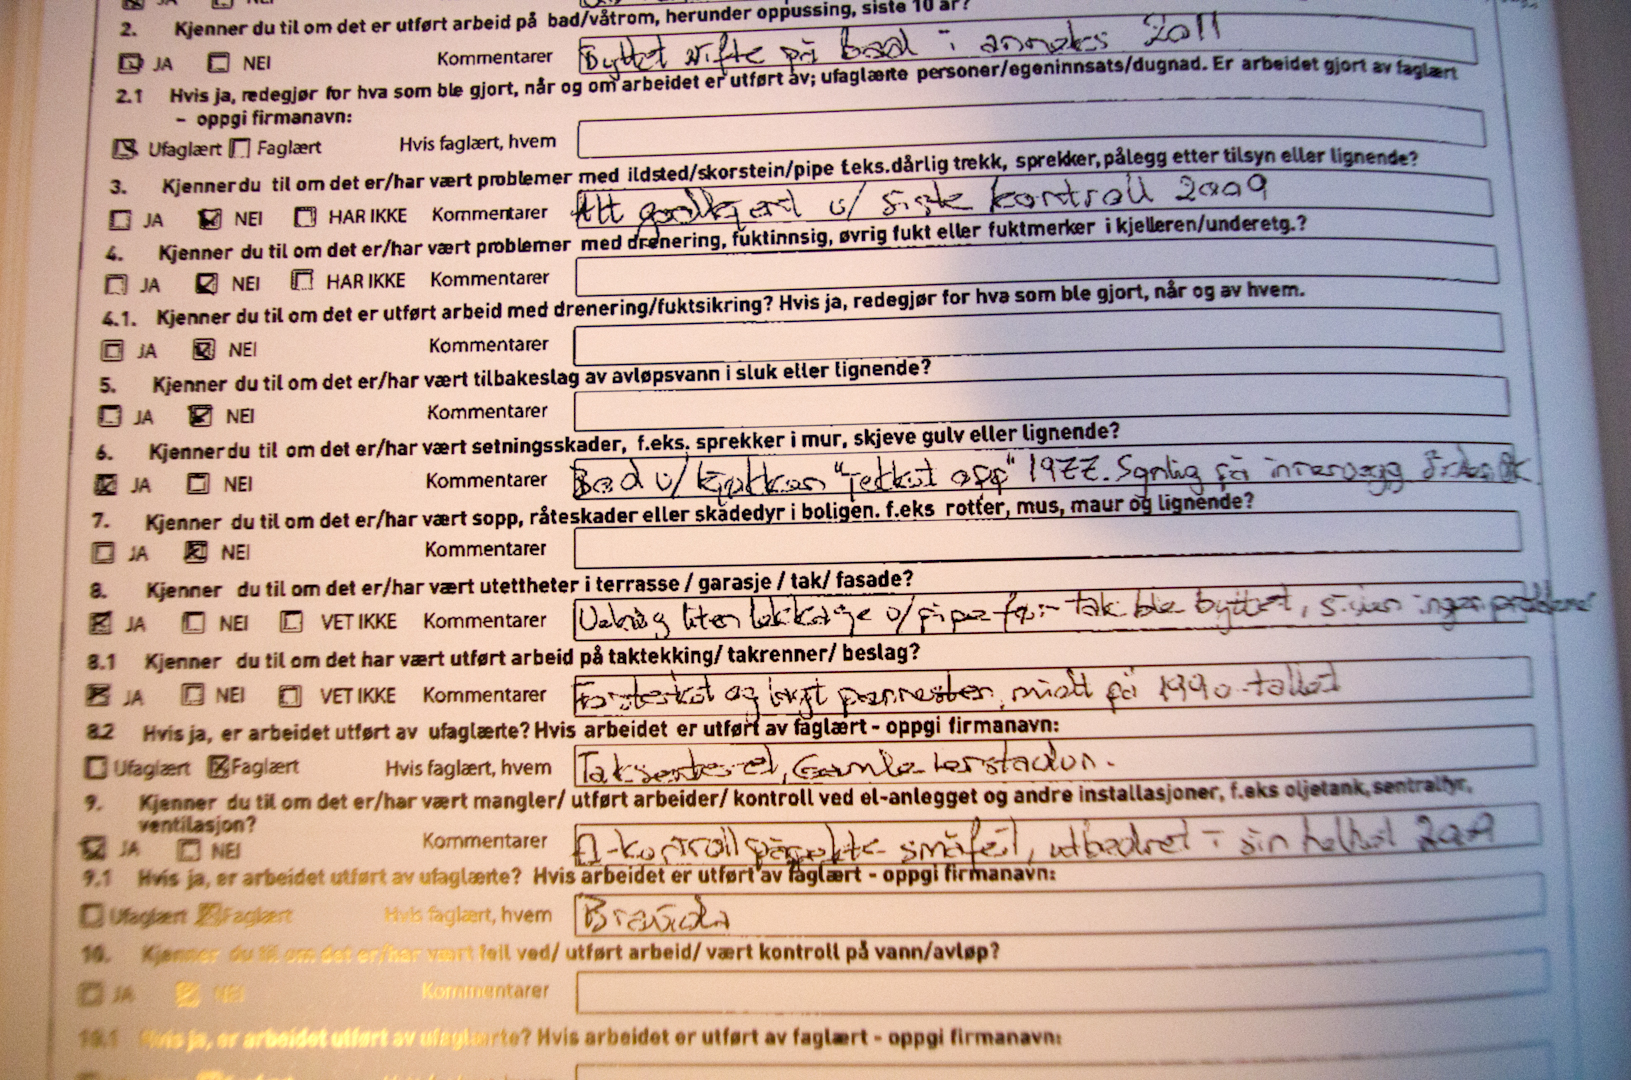 JA NEI
2. Kjenner du til om det er utført arbeid på bad/våtrom, herunder oppussing, siste 10 år?
JA NEI Kommentarer Byttet vifte på bad i anneks 2011
2.1 Hvis ja, redegjør for hva som ble gjort, når og om arbeidet er utført av; ufaglærte personer/egeninnsats/dugnad. Er arbeidet gjort av faglært
- oppgi firmanavn:
Ufaglært Faglært Hvis faglært, hvem
3. Kjenner du til om det er/har vært problemer med ildsted/skorstein/pipe f.eks. dårlig trekk, sprekker, pålegg etter tilsyn eller lignende?
JA NEI HAR IKKE Kommentarer Alt godkjent v/ siste kontroll 2009
4. Kjenner du til om det er/har vært problemer med drenering, fuktinnsig, øvrig fukt eller fuktmerker i kjelleren/underetg.?
JA NEI HAR IKKE Kommentarer
4.1. Kjenner du til om det er utført arbeid med drenering/fuktsikring? Hvis ja, redegjør for hva som ble gjort, når og av hvem.
JA NEI Kommentarer
5. Kjenner du til om det er/har vært tilbakeslag av avløpsvann i sluk eller lignende?
JA NEI Kommentarer
6. Kjenner du til om det er/har vært setningsskader, f.eks. sprekker i mur, skjeve gulv eller lignende?
JA NEI Kommentarer Bad v/ kjøkken "jekket opp" 1977. Synlig på innervegg
7. Kjenner du til om det er/har vært sopp, råteskader eller skadedyr i boligen. f.eks rotter, mus, maur og lignende?
JA NEI Kommentarer
8. Kjenner du til om det er/har vært utettheter i terrasse / garasje / tak/ fasade?
JA NEI VET IKKE Kommentarer liten lekkasje v/ pipe før tak ble byttet, siden ingen problemer
8.1 Kjenner du til om det har vært utført arbeid på taktekking/ takrenner/ beslag?
JA NEI VET IKKE Kommentarer og lagt pannestein, midt på 1990-tallet
8.2 Hvis ja, er arbeidet utført av ufaglærte? Hvis arbeidet er utført av faglært - oppgi firmanavn:
Ufaglært Faglært Hvis faglært, hvem Taksenteret, Gamle
9. Kjenner du til om det er/har vært mangler/ utført arbeider/ kontroll ved el-anlegget og andre installasjoner, f.eks oljetank, sentralfyr,
ventilasjon?
JA NEI Kommentarer El-kontroll påpekte småfeil, utbedret i sin helhet 2009
9.1 Hvis ja, er arbeidet utført av ufaglærte? Hvis arbeidet er utført av faglært - oppgi firmanavn:
Ufaglært Faglært Hvis faglært, hvem Bravida
10. Kjenner du til om det er/har vært feil ved/ utført arbeid/ vært kontroll på vann/avløp?
JA NEI Kommentarer
10.1 Hvis ja, er arbeidet utført av ufaglærte? Hvis arbeidet er utført av faglært - oppgi firmanavn: